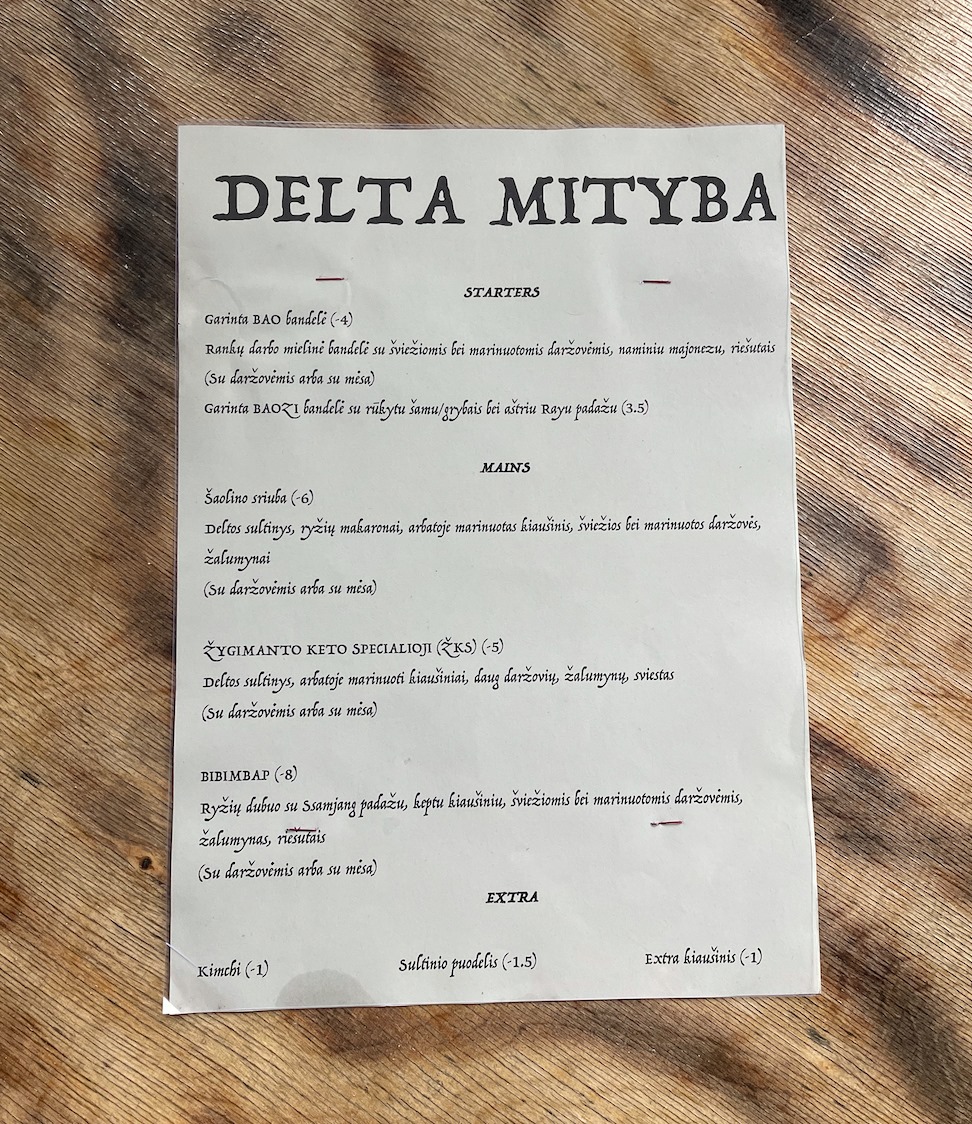 DELTA MITYBA
STARTERS
Garinta BAO bandelė (-4)
Rankų darbo mielinė bandelė su šviežiomis bei marinuotomis daržovėmis, naminiu majonezu, riešutais
(Su daržovėmis arba su mėsa)
Garinta BAOZI bandelė su rūkytu šamu/grybais bei aštriu Rayu padažu (3.5)
MAINS
Šaolino sriuba (-6)
Deltos sultinys, ryžių makaronai, arbatoje marinuotas kiaušinis, šviežios bei marinuotos daržovės,
žalumynai
(Su daržovėmis arba su mėsa)
ŽYGIMANTO KETO SPECIALIOJI (ŽKS) (-5)
Deltos sultinys, arbatoje marinuoti kiaušiniai, daug daržovių, žalumynų, sviestas
(Su daržovėmis arba su mėsa)
BIBIMBAP (-8)
Ryžių dubuo su Ssamjang padažu, keptu kiaušiniu, šviežiomis bei marinuotomis daržovėmis,
žalumynas, riešutais
(Su daržovėmis arba su mėsa)
EXTRA
Kimchi (-1) Sultinio puodelis (-1.5) Extra kiaušinis (-1)